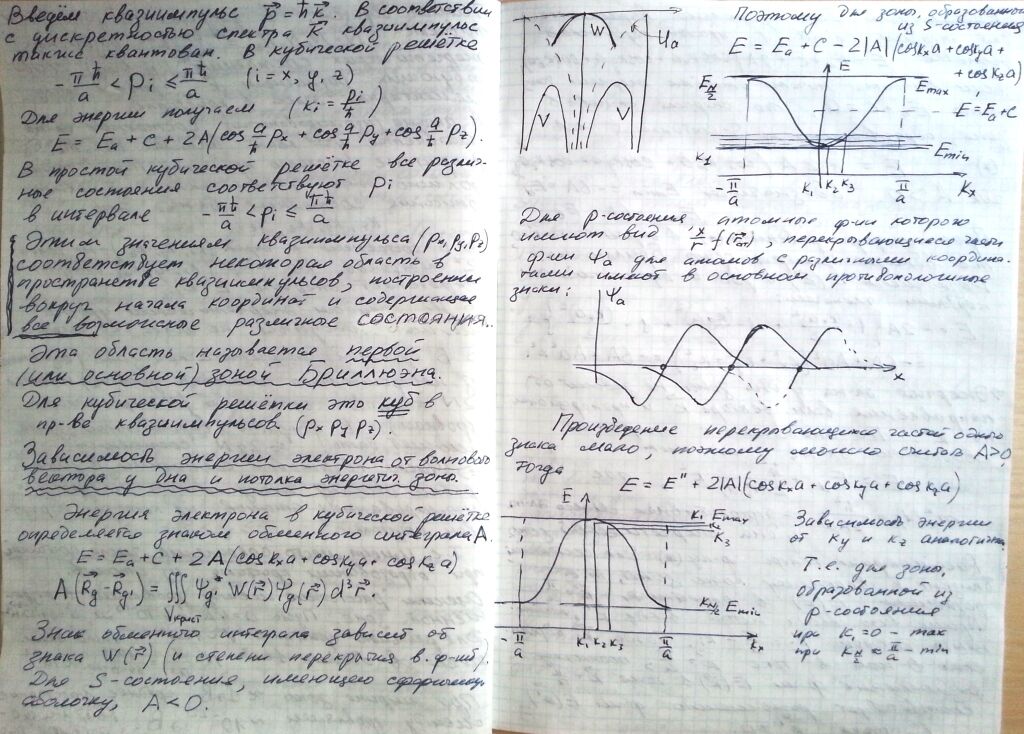 Введём квазиимпульс p⃗ = ħk⃗. В соответствии
с дискретностью спектра k⃗ квазиимпульс
также квантован. В кубической решётке
-πħ/a < pᵢ ≤ πħ/a (i = x, y, z)
Для энергии получаем (kᵢ = pᵢ/ħ)
E = Eₐ + C + 2A(cos a/ħ pₓ + cos a/ħ p_y + cos a/ħ p_z).
В простой кубической решётке все различ-
ные состояния соответствуют pᵢ
в интервале -πħ/a < pᵢ ≤ πħ/a
Этим значениям квазиимпульса (pₓ, p_y, p_z)
соответствует некоторая область в
пространстве квазиимпульсов, построенная
вокруг начала координат и содержащая
все возможные различные состояния.
Эта область называется первой
(или основной) зоной Бриллюэна.
Для кубической решётки это куб в
пр-ве квазиимпульсов (pₓ p_y p_z).
Зависимость энергии электрона от волнового
вектора у дна и потолка энергетич. зоны.
Энергия электрона в кубической решётке
определяется знаком обменного интеграла A.
E = Eₐ + C + 2A(cos kₓa + cos k_ya + cos k_za)
A(R⃗_g - R⃗_g') = ∭ Ψ*_g' W(r⃗) Ψ_g(r⃗) d³r⃗.
V крист
Знак обменного интеграла зависит от
знака W(r⃗) (и степени перекрытия в. ф-ий).
Для S-состояния, имеющего сферическую
оболочку, A < 0.
W Ψₐ
V V
Поэтому для зоны, образованной
из S-состояния
E = Eₐ + C - 2|A|(cos kₓa + cos k_ya +
+ cos k_za)
E
E_N/2 E max
E = Eₐ + C
k₁ E min
-π/a k₁ k₂ k₃ π/a kₓ
Для p-состояния, атомные ф-ии которого
имеют вид x/r f(r), перекрывающиеся части
ф-ии Ψₐ для атомов с различными координа-
тами имеют в основном противоположные
знаки:
Ψₐ
x
Произведение перекрывающихся частей одного
знака мало, поэтому можно считать A>0,
тогда
E = E" + 2|A|(cos kₓa + cos k_ya + cos k_za)
E
k₁ E max
k₃
k_N/2 E min
-π/a k₁ k₂ k₃ π/a kₓ
Зависимость энергии
от k_y и k_z аналогична.
Т.е. для зоны,
образованной из
p-состояния
при k₁ = 0 - max
при k_N/2 ≈ π/a - min